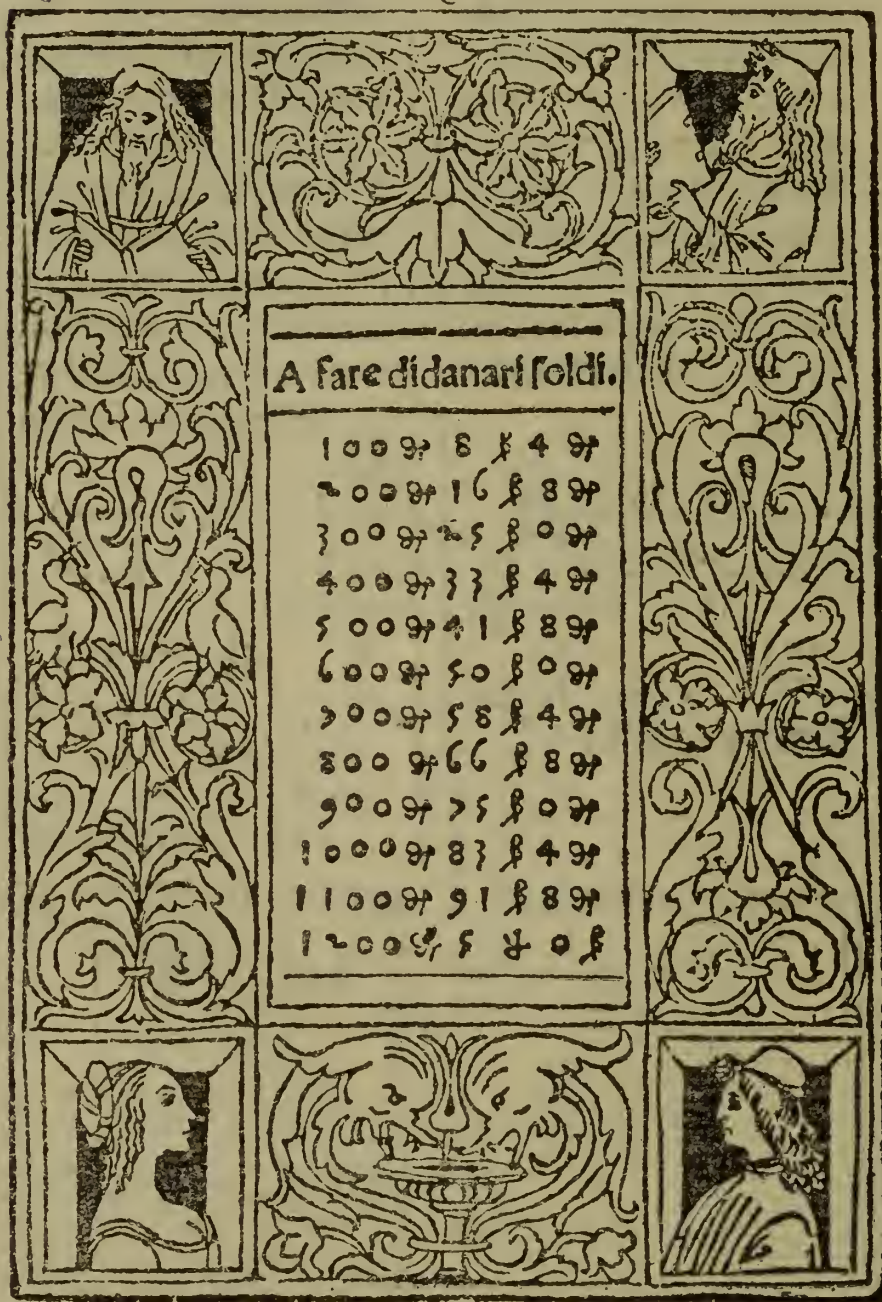 A fare didanari ſoldi.
100 ₰ 8 ß 4 ₰
200 ₰ 16 ß 8 ₰
300 ₰ 25 ß 0 ₰
400 ₰ 33 ß 4 ₰
500 ₰ 41 ß 8 ₰
600 ₰ 50 ß 0 ₰
700 ₰ 58 ß 4 ₰
800 ₰ 66 ß 8 ₰
900 ₰ 75 ß 0 ₰
1000 ₰ 83 ß 4 ₰
1100 ₰ 91 ß 8 ₰
1200 ₰ 5 ₶ 0 ß